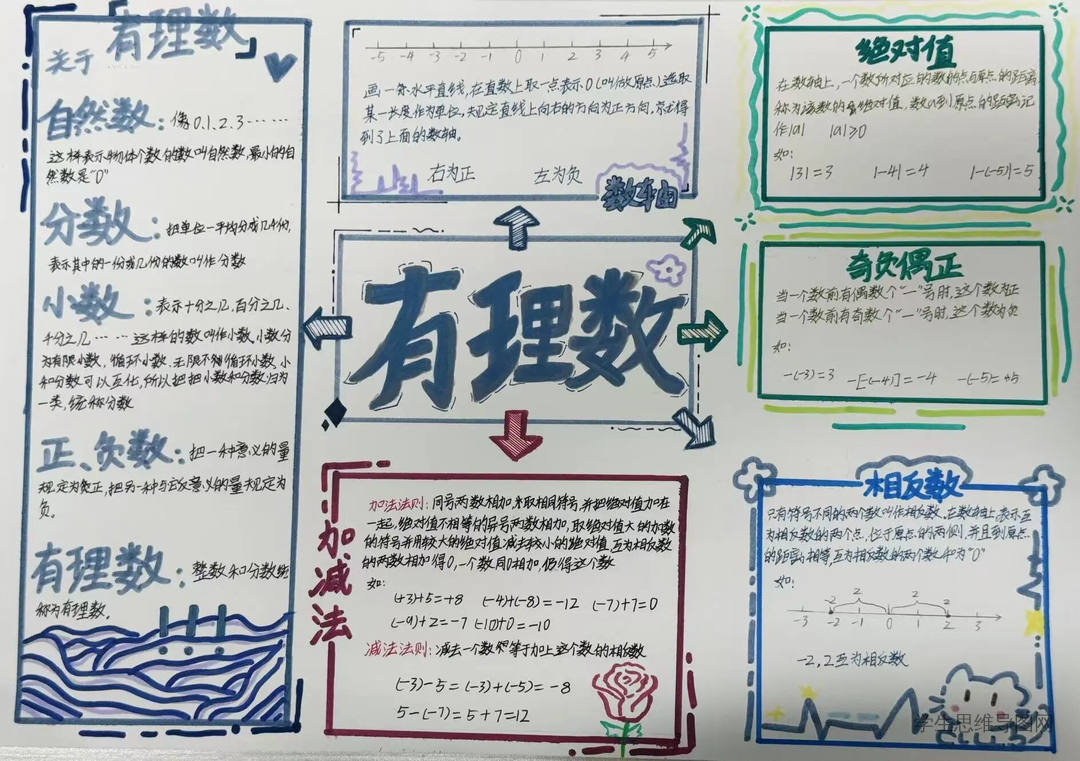 关于有理数
自然数：像0.1.2.3……
这样表示物体个数的数叫自然数,最小的自
然数是"0"
分数：把单位一平均分成几个份,
表示其中的一份或几份的数叫作分数
小数：表示十分之几,百分之几、
千分之几……这样的数叫作小数,小数分
为有限小数，循环小数、无限不循环小数,小
和分数可以互化,所以把把小数和分数归为
一类,统称分数
正、负数：把一种意义的量
规定为正,把另一种与 意义的量规定为
负。
有理数：整数和分数统
称为有理数。
-5 -4 -3 -2 -1 0 1 2 3 4 5
画一条水平直线,在直数上取一点表示0(叫做原点),选取
某一长度作为单位,规定直线上向右的方向为正方向,就得
到了上面的数轴。
右为正 左为负
数轴
有理数
加减法
加法法则:同号两数相加,采取相同符号,并把绝对值加在
一起,绝对值不相等的异号两数相加,取绝对值大的加数
的符号并用较大的绝对值减去较小的绝对值,互为相反数
的两数相加得0,一个数同0相加,仍得这个数
如:
(+3)+5=+8 (-4)+(-8)=-12 (-7)+7=0
(-9)+2=-7 (-10)+0=-10
减法法则:减去一个数 等于加上这个数的相反数
(-3)-5=(-3)+(-5)=-8
5-(-7)=5+7=12
绝对值
在数轴上,一个数所对应的数的点与原点的距离
称为该数的绝对值,数a到原点的距离记
作|a| |a|≥0
如:
|3|=3 |-4|=4 |-(-5)|=5
奇负偶正
当一个数前有偶数个"-"号时,这个数为正
当一个数前有奇数个"-"号时,这个数为负
如:
-(-3)=3 -[-(-4)]=-4 -(-5)=+5
相反数
只有符号不同的两个数叫作相反数,在数轴上,表示互
为相反数的两个点,位于原点的两侧,并且到原点
的距离相等,互为相反数的两个数和为"0"
如:
-2 2 2 2
-3 -2 -1 0 1 2 3
-2,2互为相反数
学生思维导图网